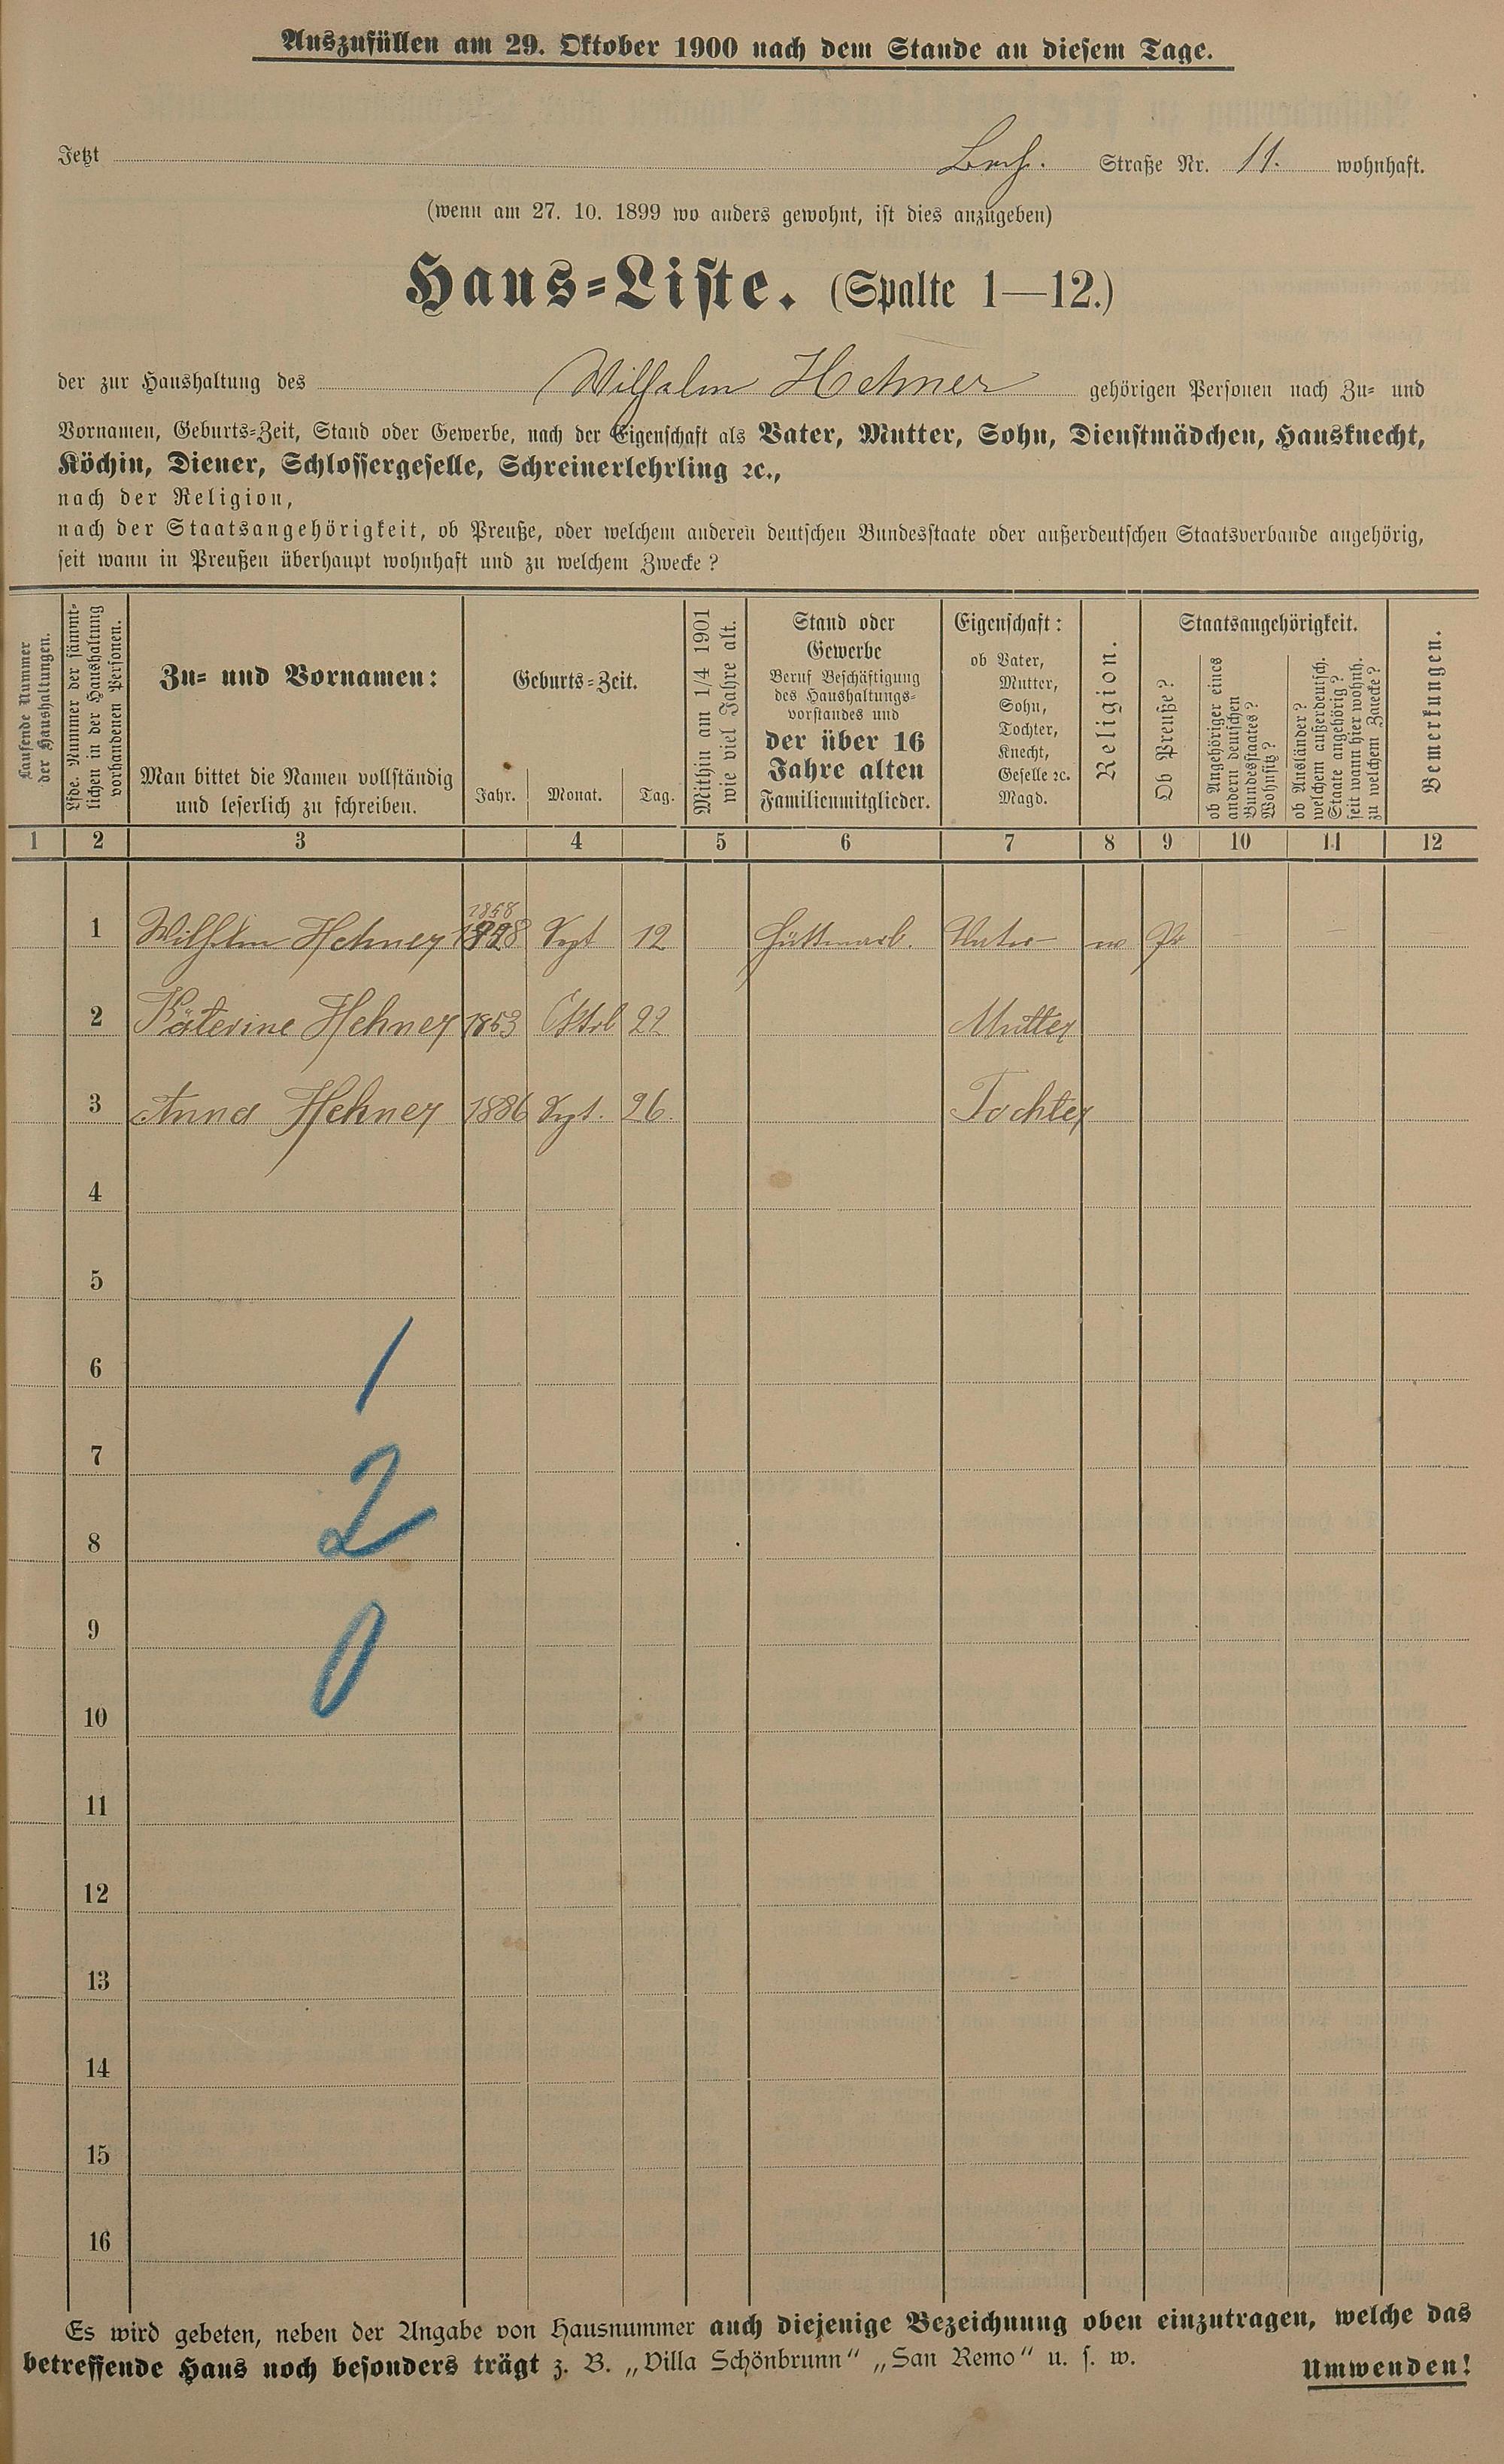 Auszufüllen am 29. Oktober 1900 nach dem Stande an diesem Tage.
Jetzt Straße Nr. 11. wohnhaft.
(wenn am 27. 10. 1899 wo anders gewohnt, ist dies anzugeben)
Haus-Liste. (Spalte 1—12.)
der zur Haushaltung des Wilhelm Hehner gehörigen Personen nach Zu- und
Vornamen, Geburts-Zeit, Stand oder Gewerbe, nach der Eigenschaft als Vater, Mutter, Sohn, Dienstmädchen, Hausknecht,
Köchin, Diener, Schlossergeselle, Schreinerlehrling ꝛc.,
nach der Religion,
nach der Staatsangehörigkeit, ob Preuße, oder welchem anderen deutschen Bundesstaate oder außerdeutschen Staatsverbande angehörig,
seit wann in Preußen überhaupt wohnhaft und zu welchem Zwecke?
Laufende Nummer
der Haushaltungen.
Lfde. Nummer der sämmt-
lichen in der Haushaltung
vorhandenen Personen.
Zu- und Vornamen:
Man bittet die Namen vollständig
und leserlich zu schreiben.
Geburts-Zeit.
Jahr. Monat. Tag.
Mithin am 1/4 1901
wie viel Jahre alt.
Stand oder
Gewerbe
Beruf Beschäftigung
des Haushaltungs-
vorstandes und
der über 16
Jahre alten
Familienmitglieder.
Eigenschaft:
ob Vater,
Mutter,
Sohn,
Tochter,
Knecht,
Geselle ꝛc.
Magd.
Religion.
Staatsangehörigkeit.
Ob Preuße?
ob Angehöriger eines
andern deutschen
Bundesstaates?
Wohnsitz?
ob Ausländer?
welchem außerdeutsch.
Staate angehörig?
seit wann hier wohnh.
zu welchem Zwecke?
Bemerkungen.
1 2 3 4 5 6 7 8 9 10 11 12
1858
1 Wilhelm Hehner Sept 12 Hüttenarb. Vater Pr
2 Käterine Hehner 1853 Oktob 22 Mutter
3 Anna Hehner 1886 Sept. 26. Tochter
4
5
6
1
7
2
8
9
0
10
11
12
13
14
15
16
Es wird gebeten, neben der Angabe von Hausnummer auch diejenige Bezeichnung oben einzutragen, welche das
betreffende Haus noch besonders trägt z. B. „Villa Schönbrunn“ „San Remo“ u. s. w.
Umwenden!